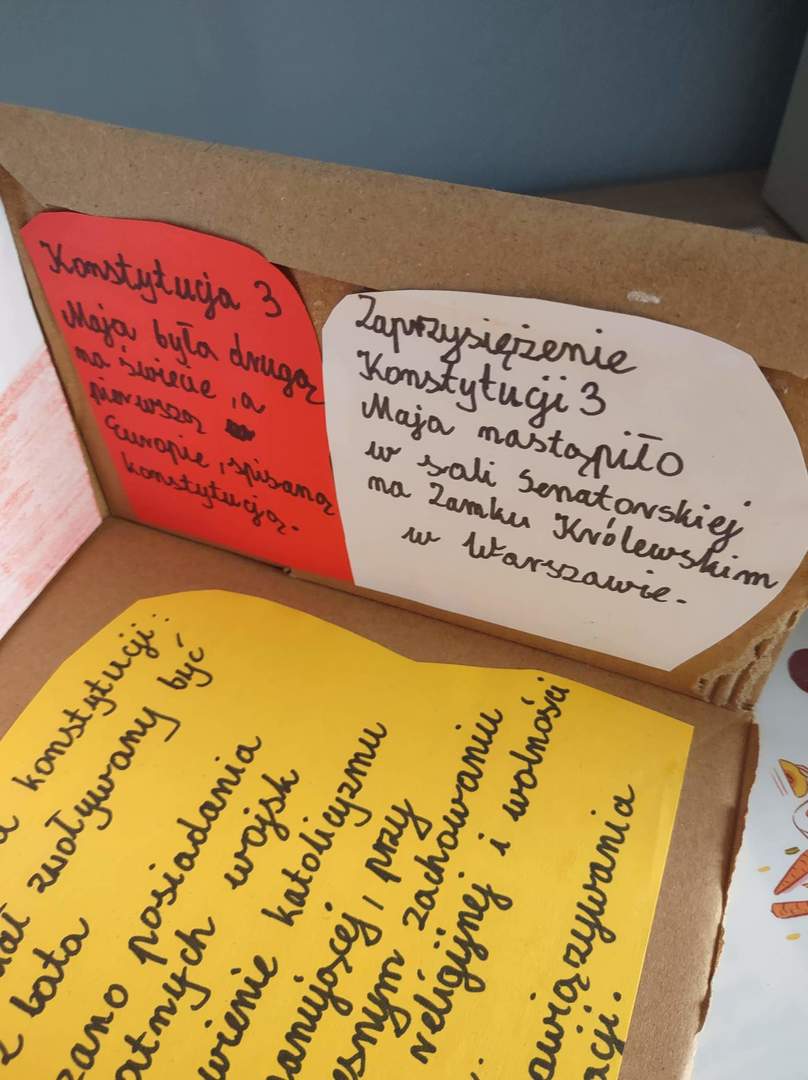 Konstytucja 3
Maja była drugą
na świecie, a
pierwszą
Europie, spisaną
konstytucją.
Zaprzysiężenie
Konstytucji 3
Maja nastąpiło
w sali Senatorskiej
na Zamku Królewskim
w Warszawie.
konstytucji:
zwoływany być
lata
posiadania
wojsk
katolicyzmu
przy
zachowaniu
religijnej i wolności